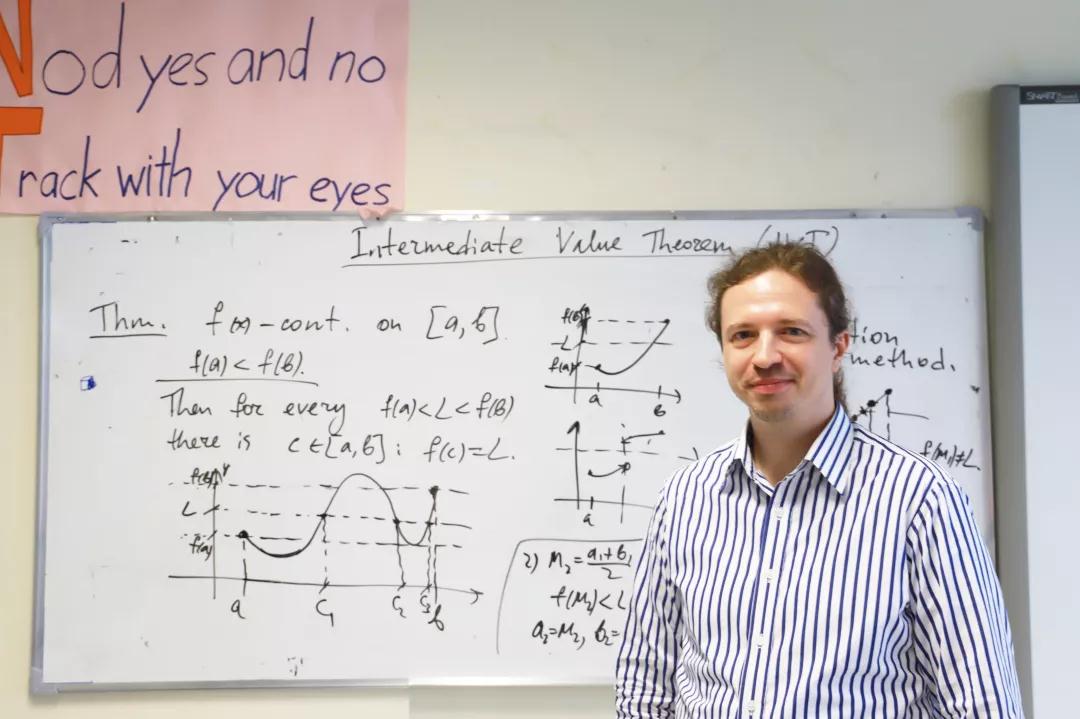 Nod yes and no
Track with your eyes
SMART
Intermediate Value Theorem (IVT)
Thm. f(x)-cont. on [a,b].
f(a) < f(b).
Then for every f(a)<L<f(b)
there is c∈[a,b]: f(c)=L.
f(b) y
L
f(a)
a c₁ c₂ c₃ b
f(b)
L
f(a)
a b
a
tion
method.
f(m₁)≠L.
2) M₂=a₁+b₁/2
f(M₂)<L
a₂=M₂, b₂=